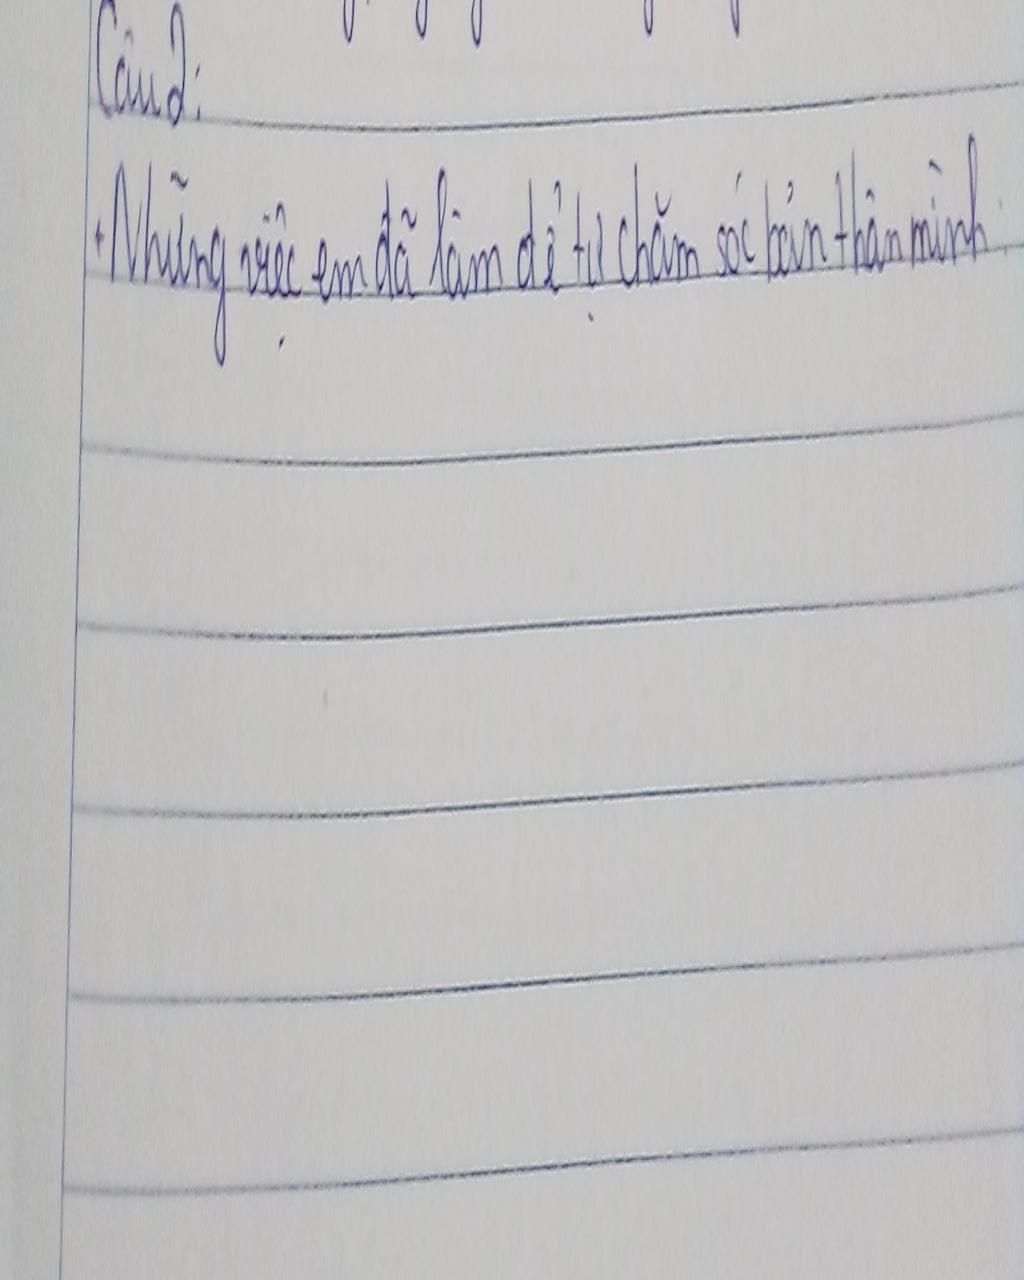 Câu 2:
+ Những việc em đã làm để tự chăm sóc bản thân mình